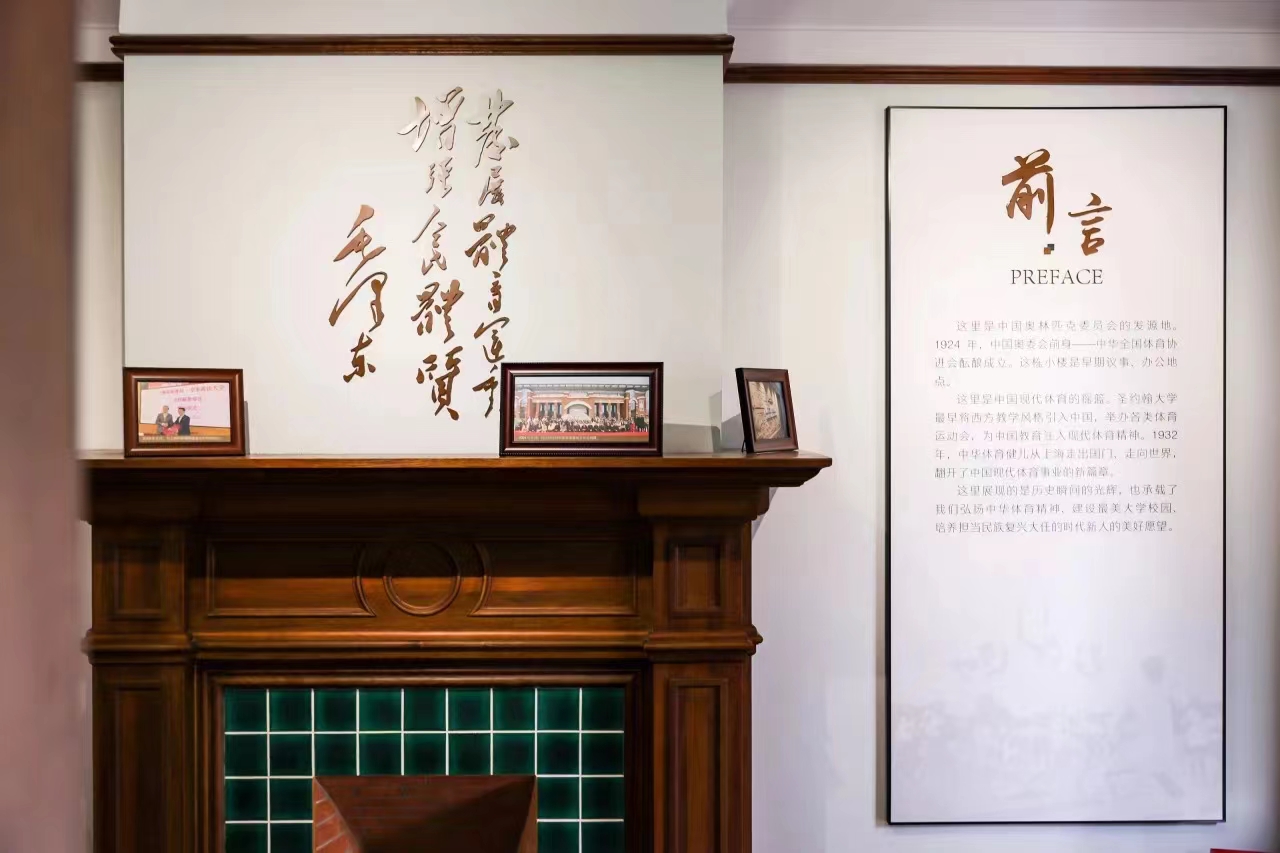 發展體育運動
增强人民體質
毛泽东
前言
PREFACE
这里是中国奥林匹克委员会的发源地。
1924 年，中国奥委会前身——中华全国体育协
进会酝酿成立。这栋小楼是早期议事、办公地
点。
这里是中国现代体育的摇篮。圣约翰大学
最早将西方教学风格引入中国，举办各类体育
运动会，为中国教育注入现代体育精神。1932
年，中华体育健儿从上海走出国门，走向世界，
翻开了中国现代体育事业的新篇章。
这里展现的是历史瞬间的光辉，也承载了
我们弘扬中华体育精神、建设最美大学校园、
培养担当民族复兴大任的时代新人的美好愿望。